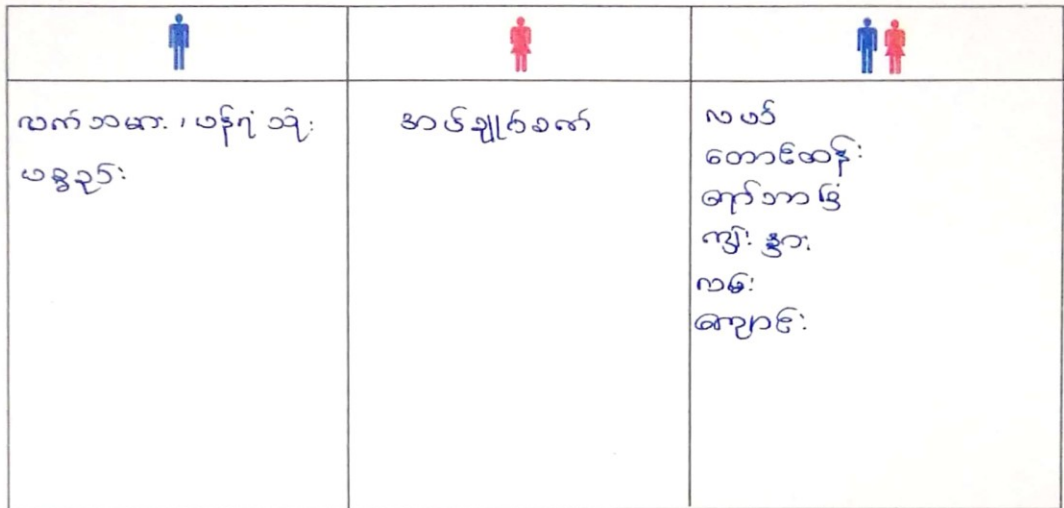 လက်သမား၊ ပန်းရံ သုံး
ပစ္စည်း
အပ်ချုပ်စက်
လယ်
တောင်ထန်း
ရော်ဘာခြံ
ကျွဲ၊ နွား
လမ်း
ကျောင်း